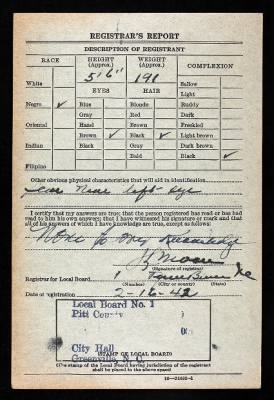 REGISTRAR'S REPORT
DESCRIPTION OF REGISTRANT
RACE HEIGHT (Approx.) WEIGHT (Approx.) COMPLEXION
5' 6" 191
White Sallow
EYES HAIR Light
Negro ✓ Blue Blonde Ruddy
Gray Red Dark
Oriental Hazel Brown Freckled
Brown ✓ Black ✓ Light brown
Indian Black Gray Dark brown
Bald Black ✓
Filipino
Other obvious physical characteristics that will aid in identification
near left eye
I certify that my answers are true; that the person registered has read or has had read to him his own answers; that I have witnessed his signature or mark and that all of his answers of which I have knowledge are true, except as follows:
None to my Knowledge
Moore
(Signature of registrar)
Registrar for Local Board 1
(Number) (City or county) (State)
Date of registration 2-16-42
Local Board No. 1
Pitt County
City Hall
Greenville, N. C.
(STAMP OF LOCAL BOARD)
(The stamp of the Local Board having jurisdiction of the registrant shall be placed in the above space)